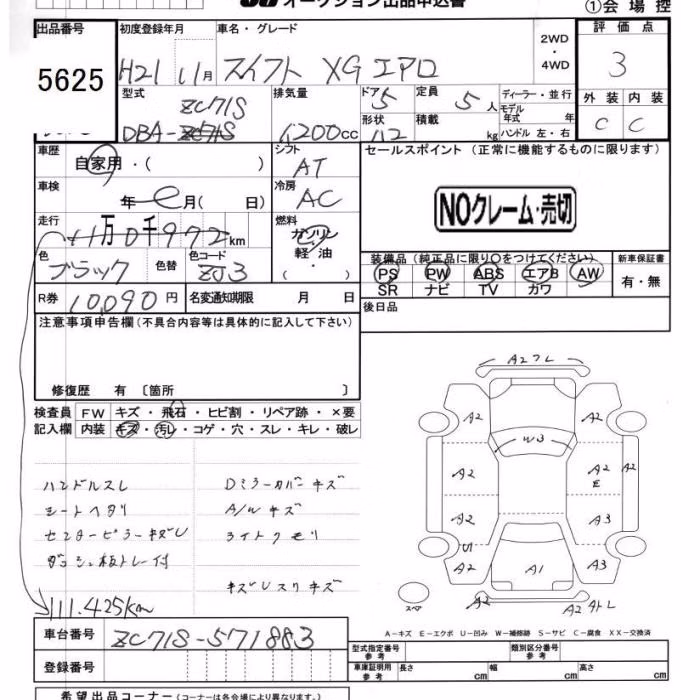 オークション出品申込書
①会場控
出品番号 5625
初度登録年月 H21 11月
車名・グレード スイフト XG エアロ
2WD・4WD
評価点 3
外装 C 内装 C
型式 ZC71S DBA-
排気量 1200cc
ドア 5
形状
定員 5人
積載 kg
ディーラー・並行
モデル年式 年
ハンドル 左・右
車歴 自家用・( )
シフト AT
車検 年 月( 日)
冷房 AC
走行 11万0千972km
燃料 ガソリン・軽油・( )
色 ブラック
色替
色コード ZJ3
R券 10,090円
名変通知期限 月 日
セールスポイント (正常に機能するものに限ります)
NOクレーム・売切
装備品(純正品に限り○をつけてください)
新車保証書 有・無
PS PW ABS エアB AW
SR ナビ TV カワ
後日品
注意事項申告欄(不具合内容等は具体的に記入して下さい)
修復歴 有 〔箇所 〕
検査員記入欄
FW キズ・飛石・ヒビ割・リペア跡・×要
内装 キズ・汚レ・コゲ・穴・スレ・キレ・破レ
ハンドルスレ
シートヘタリ
センターピラーキズU
ダッシュ板トレー付
Dミラーカバーキズ
A/Wキズ
ライトクモリ
キズUスリキズ
111.425km
A2フレ
A2 A2
W3
A2 A2 E A2
A2 A3
U1
A2 A1 A3
A2 A2トレ
スペア
A-キズ E-エクボ U-凹み W-補修跡 S-サビ C-腐食 XX-交換済
車台番号 ZC71S-571883
登録番号
型式指定番号 参考
類別区分番号 参考
車庫証明用 参考 長さ cm 幅 cm 高さ cm
希望出品コーナー(コーナーは各会場により異なります。)